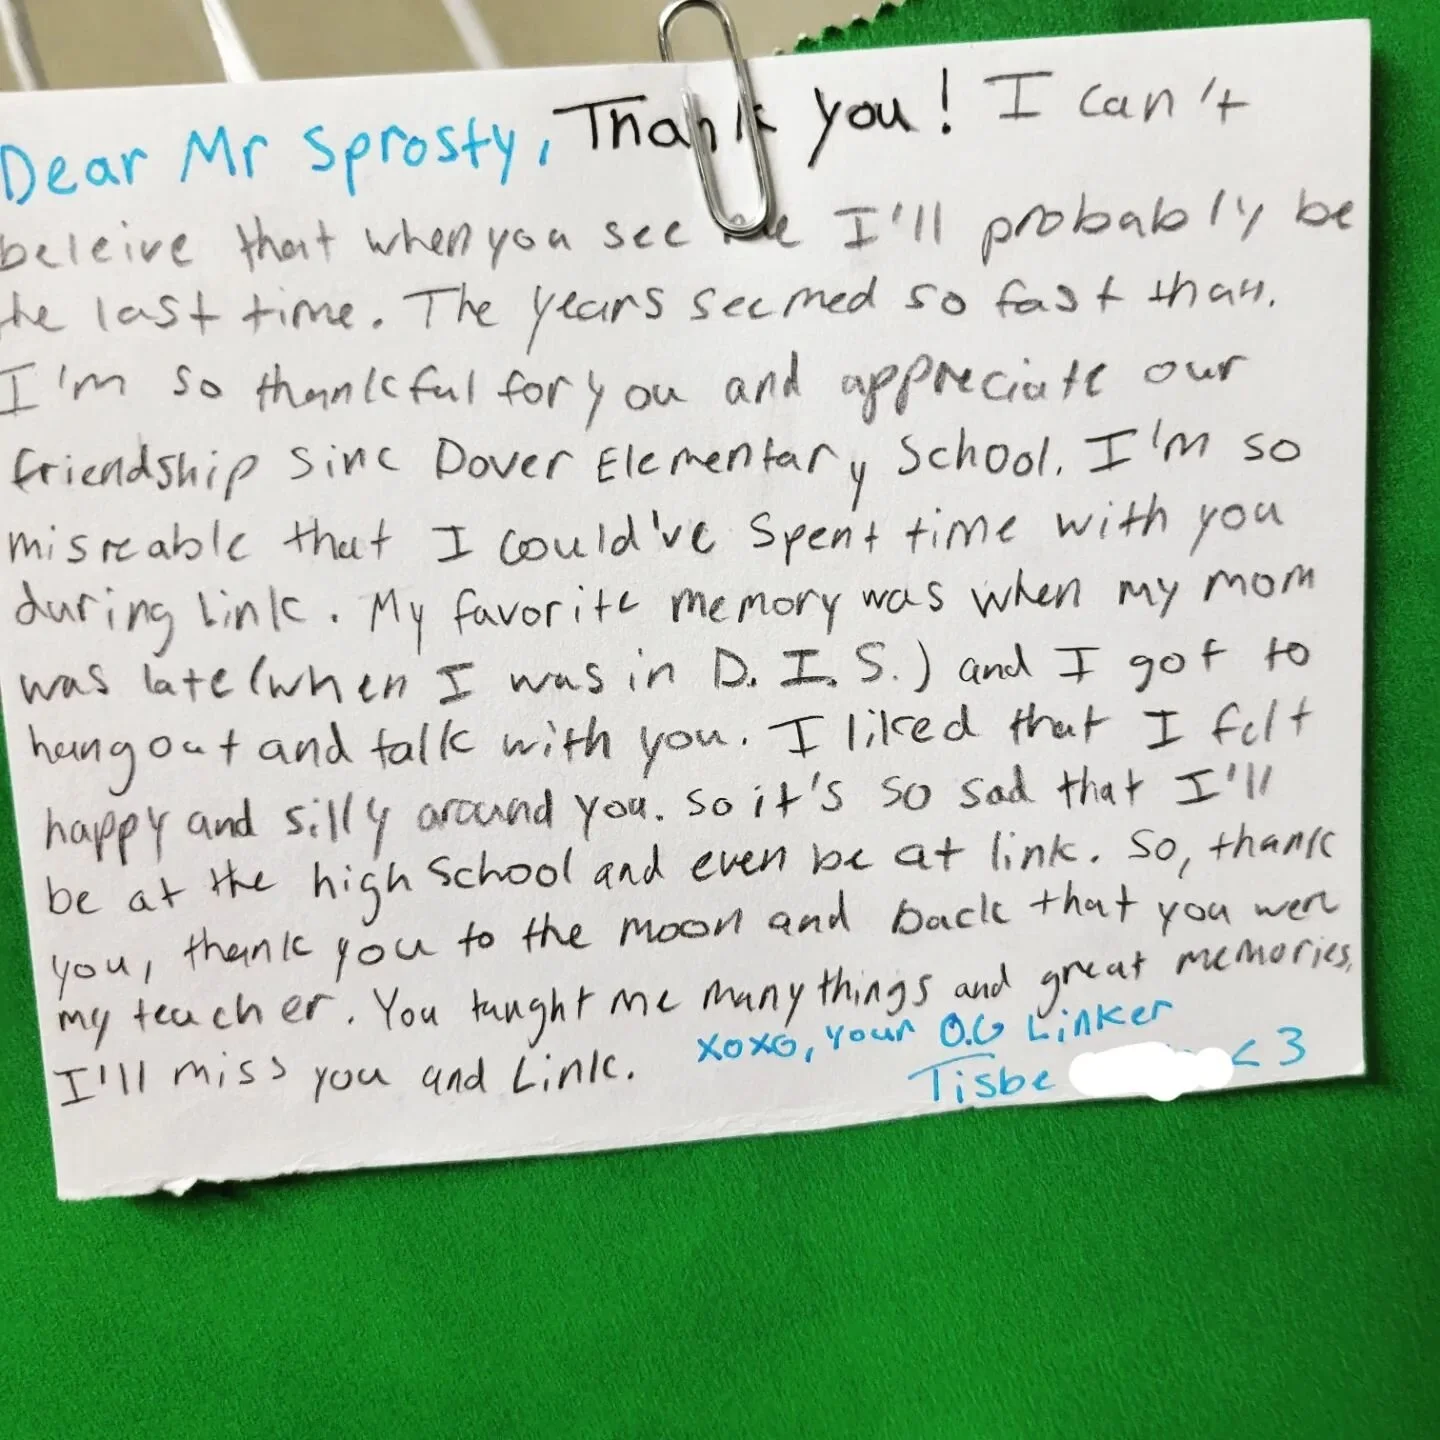 Dear Mr Sprosty, Thank you! I can't
beleive that when you see me I'll probably be
the last time. The years seemed so fast than.
I'm so thankful for you and appreciate our
friendship sinc Dover Elementary School. I'm so
misreable that I could've spent time with you
during Link. My favorite memory was when my mom
was late (when I was in D.I.S.) and I got to
hang out and talk with you. I liked that I felt
happy and silly around you. So it's so sad that I'll
be at the high school and even be at link. So, thank
you, thank you to the moon and back that you were
my teacher. You taught me many things and great memories.
I'll miss you and Link. xoxo, your O.G Linker
Tisbe <3